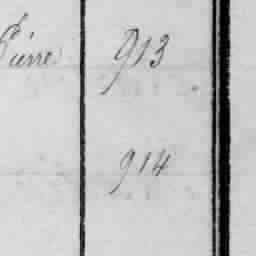 Pierre 913
914